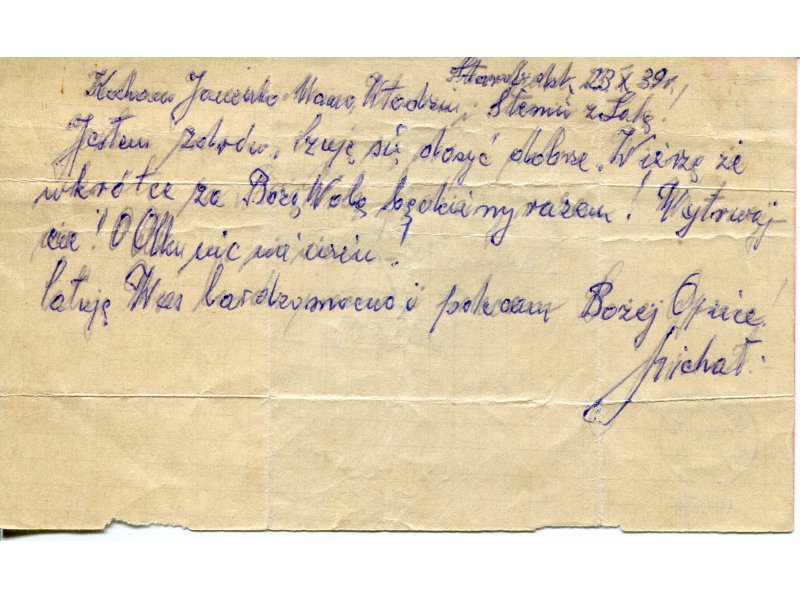 Starobielsk, 23 X 39 r.
Kochana Janeczko Mamo, Władziu, Steniu z Lalą!
Jestem zdrów. Czuję się dosyć dobrze. Wierzę że
wkrótce za Bożą Wolą będziemy razem! Wytrwaj
cie! O Olku nic nie wiem!
Całuję Was bardzo mocno i polecam Bożej Opiece!
Michał.